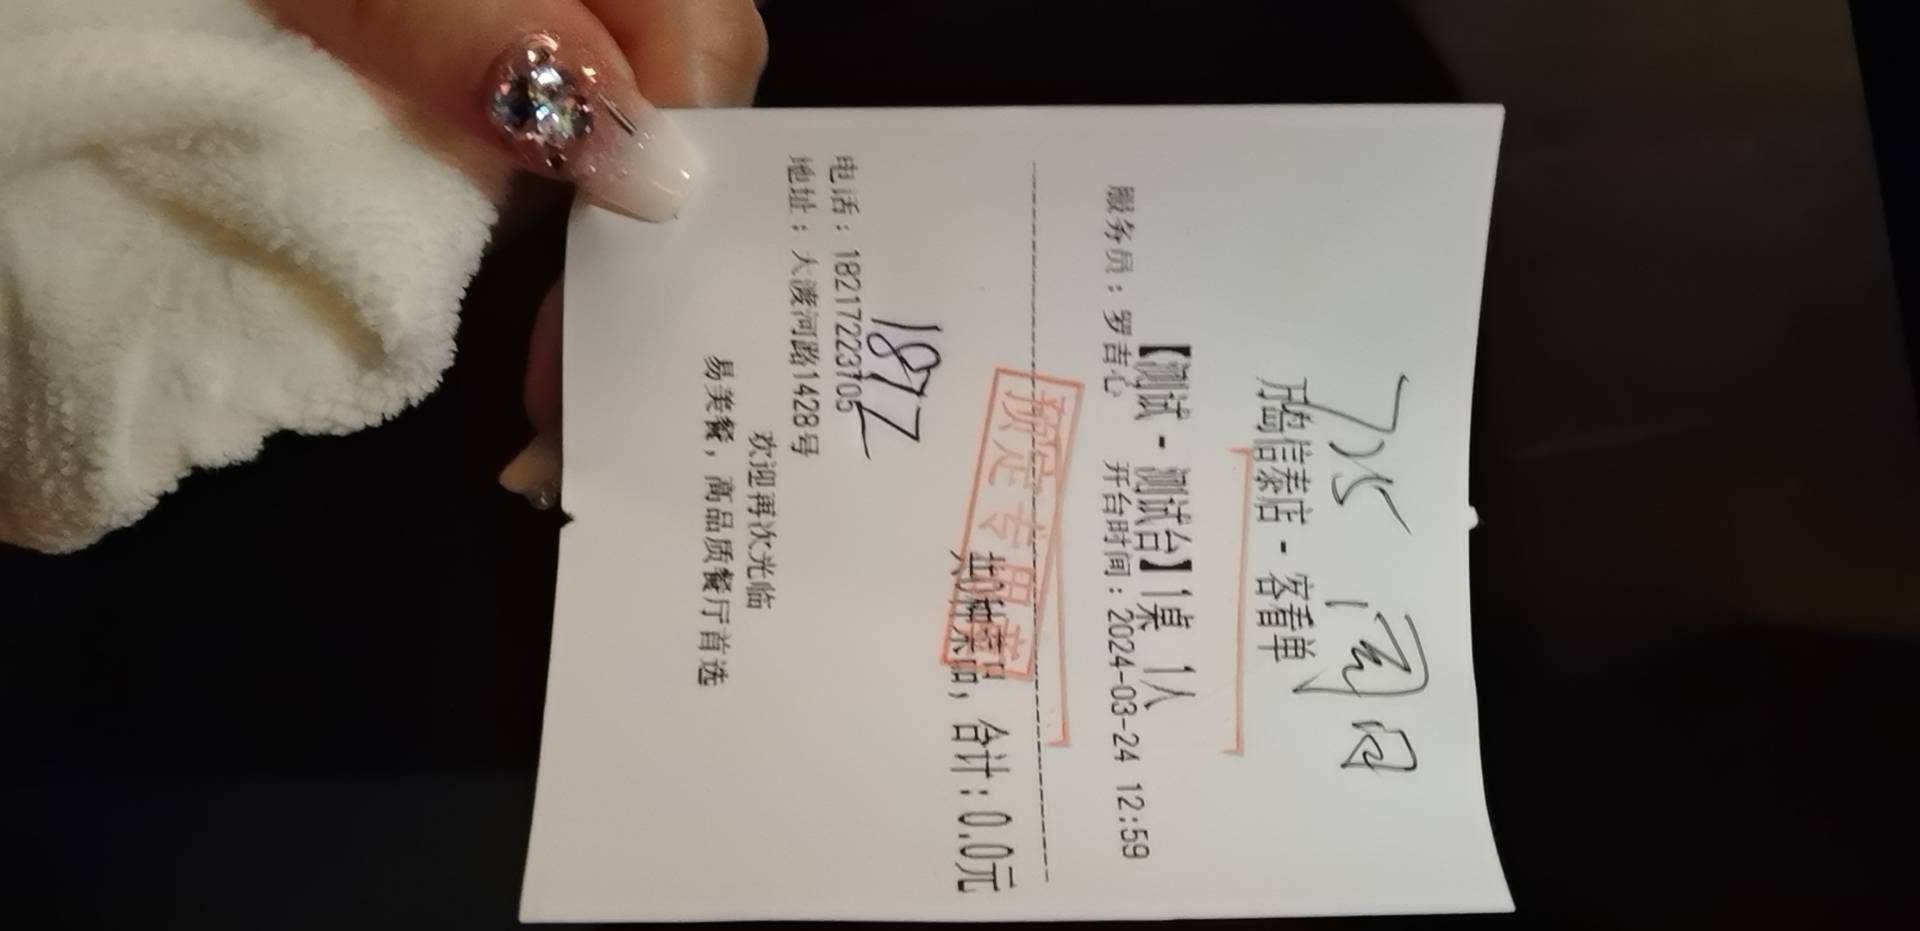 信泰店 - 客看单
【测试 - 测试台】1桌 1人
服务员：罗吉心 开台时间：2024-03-24 12:59
预定专用章
共0种菜品，合计：0.0元
187
电话：18217223705
地址：大渡河路1428号
欢迎再次光临
易美餐，高品质餐厅首选